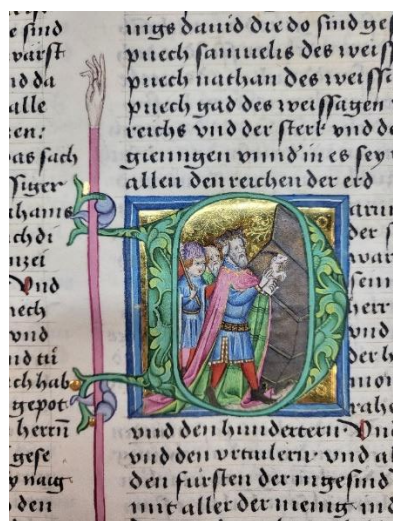 e sind
varst
nd da
alle
zen:
as sach
siger
thams
ch di
nzei
Vnd
nech
vnd
nd tü
ch hab
gepot
herrn
gese
y naig
den
nigs dauid die do sind ges
puech samuelis des weiss
puech nathan des weissa
puech gad des weissagen
reichs vnd der sterk vnd de
giengen vnnd in es sey
allen den reichen der erd
D arum
der s
war
senn
herr
vnd
der h
mon
rahe
vnd den hundertern Vnd
vnd den vrtailern vnd al
den fürsten der ingesind
mit aller der menig in d